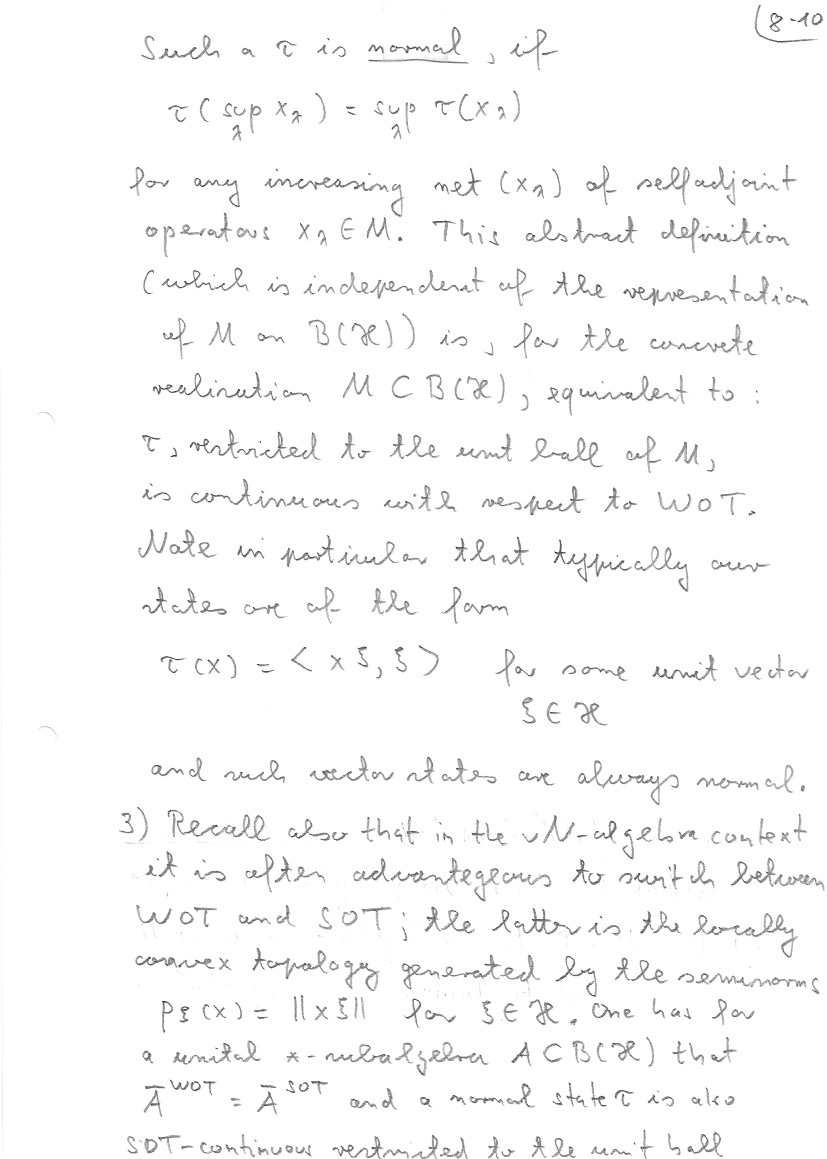 (8-10
Such a τ is normal, if
τ( sup x_λ ) = sup τ(x_λ)
λ λ
for any increasing net (x_λ) of selfadjoint
operators x_λ ∈ M. This abstract definition
(which is independent of the representation
of M on B(ℋ)) is, for the concrete
realization M ⊂ B(ℋ), equivalent to:
τ, restricted to the unit ball of M,
is continuous with respect to WOT.
Note in particular that typically our
states are of the form
τ(x) = < x ξ, ξ > for some unit vector
ξ ∈ ℋ
and such vector states are always normal.
3) Recall also that in the vN-algebra context
it is often advantegeous to switch between
WOT and SOT; the latter is the locally
convex topology generated by the seminorms
p_ξ (x) = ||x ξ|| for ξ ∈ ℋ. One has for
a unital *-subalgebra A ⊂ B(ℋ) that
Ā^WOT = Ā^SOT and a normal state τ is also
SOT-continuous restricted to the unit ball